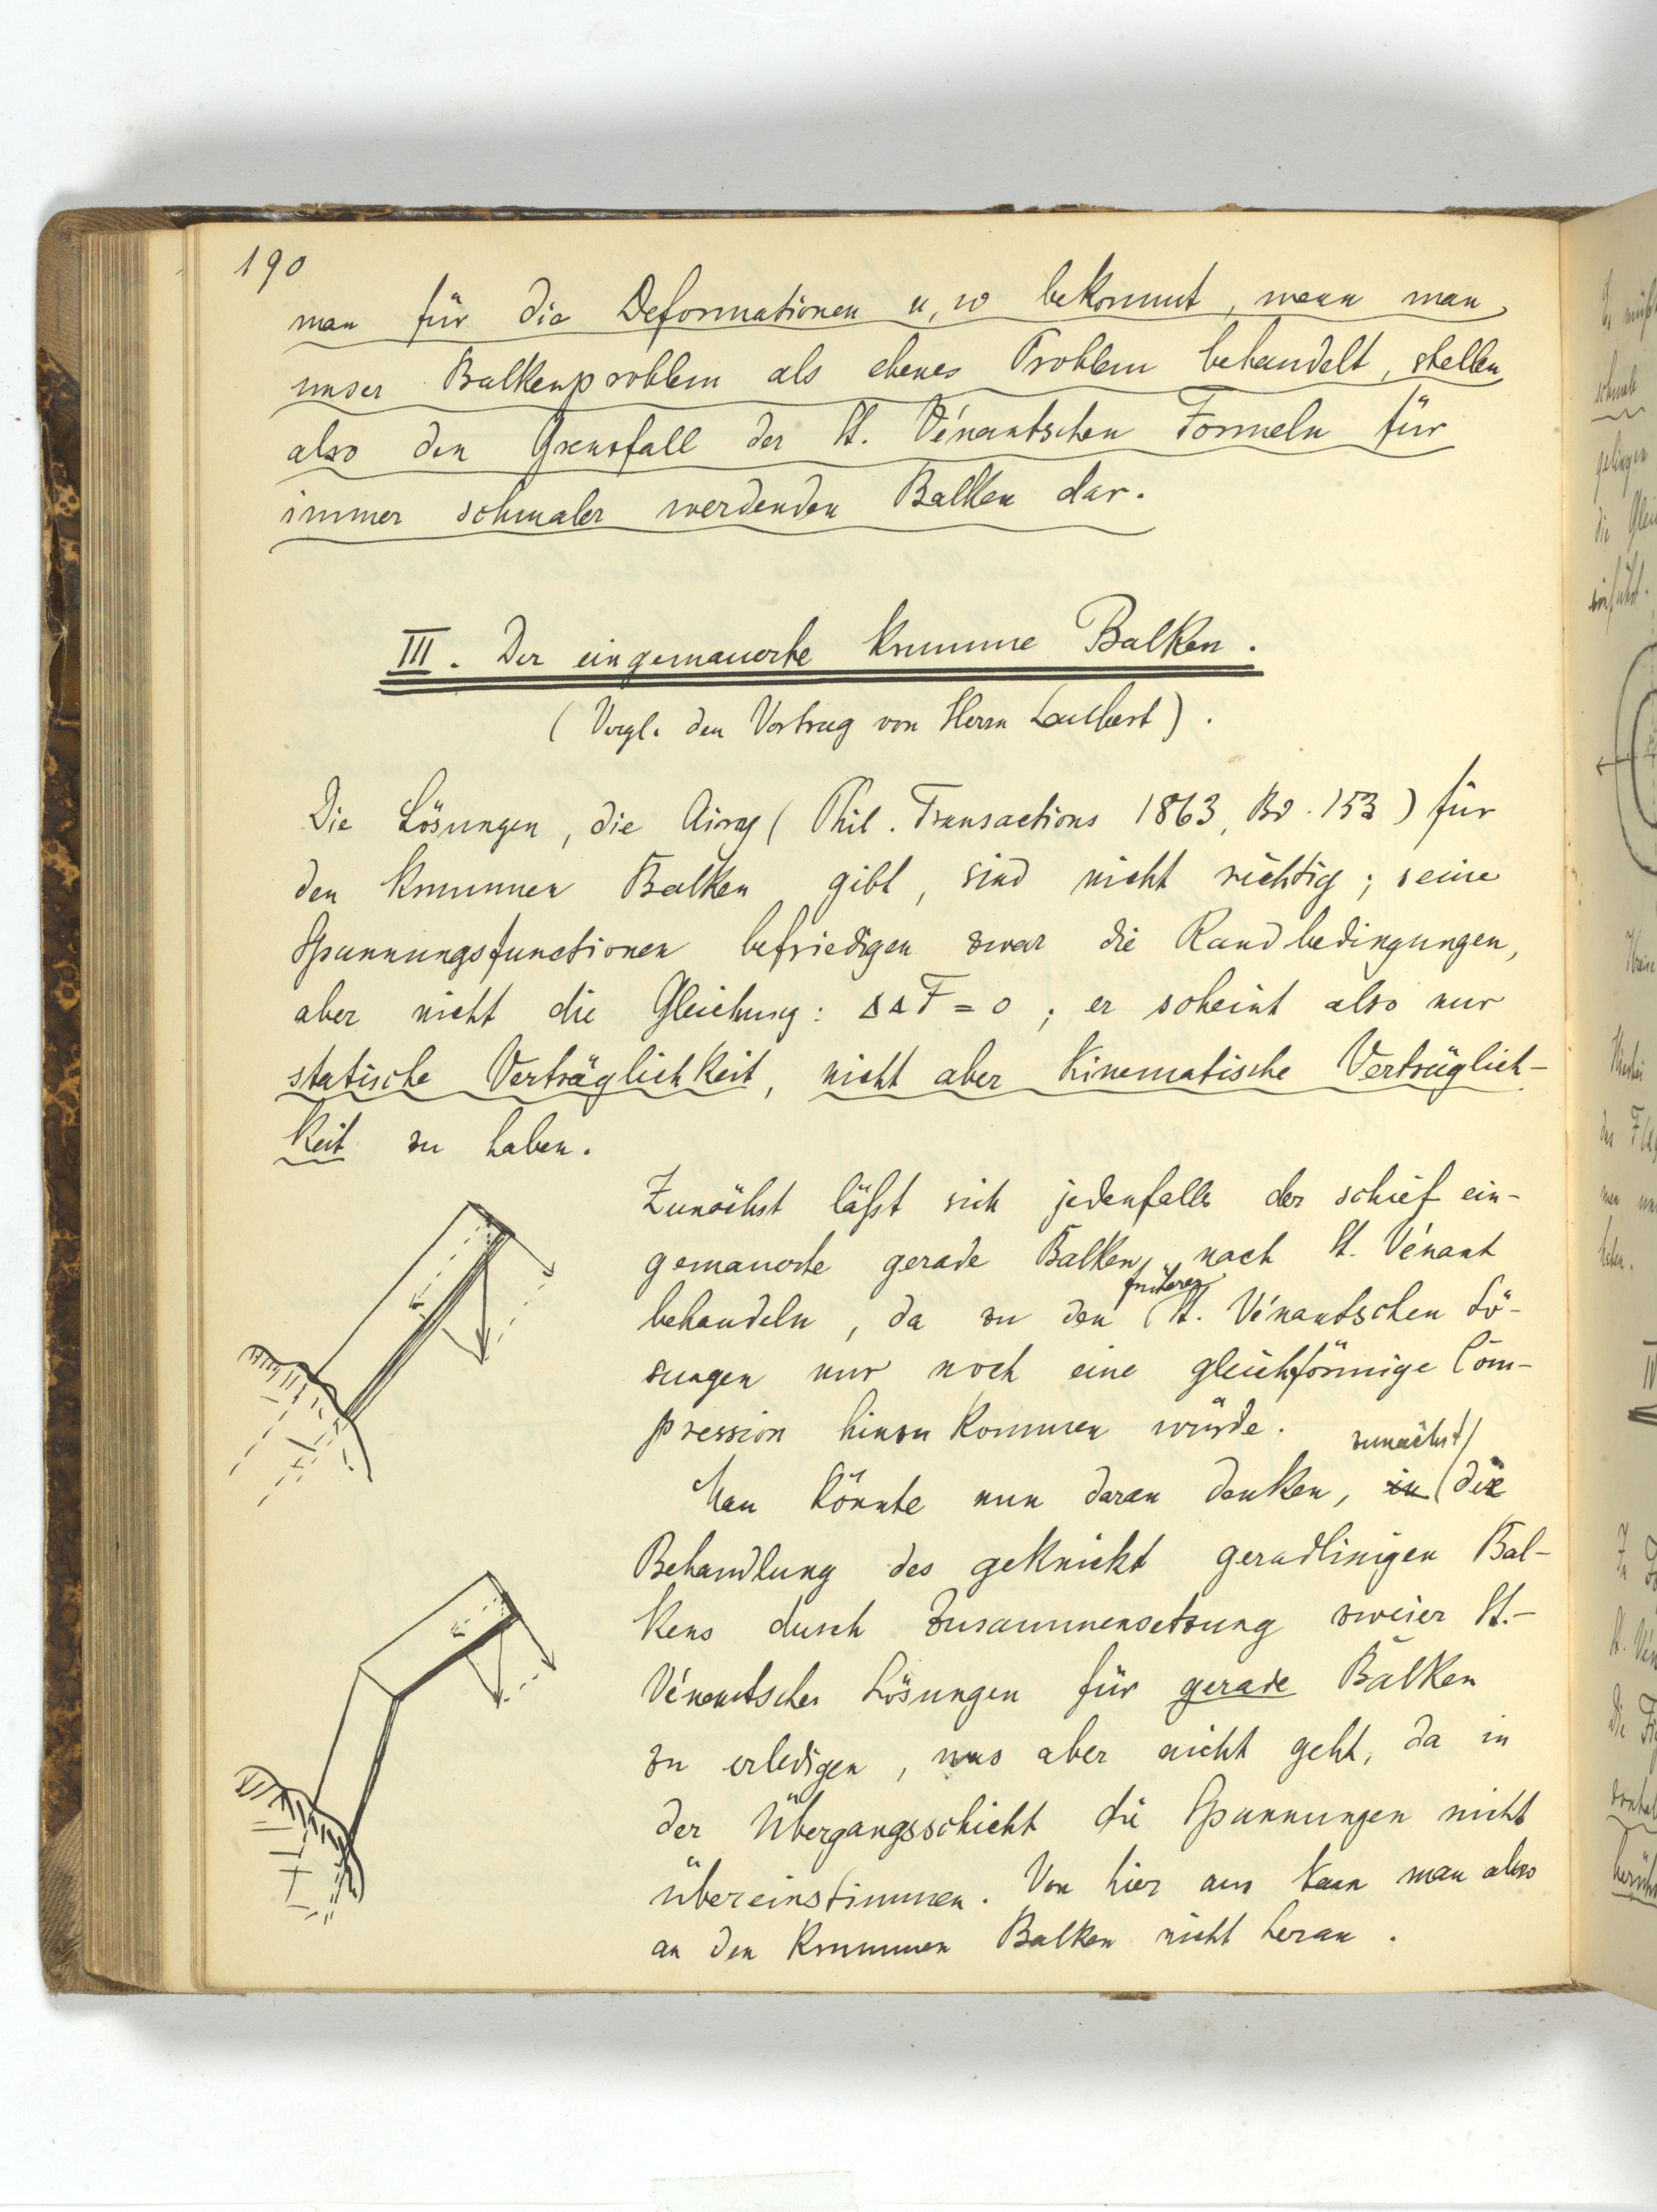 190
man für die Deformationen u, w bekommt, wenn man
unser Balkenproblem als ebenes Problem behandelt, stellen
also den Grenzfall der St. Vénantschen Formeln für
immer schmaler werdenden Balken dar.
III. Der eingemauerte krumme Balken.
(Vergl. den Vortrag von Herrn).
Die Lösungen, die Airy (Phil. Transactions 1863, Bd. 153) für
den krummen Balken gibt, sind nicht richtig; seine
Spannungsfunctionen befriedigen zwar die Randbedingungen,
aber nicht die Gleichung: ΔΔF = 0; er scheint also nur
statische Verträglichkeit, nicht aber kinematische Verträglich-
keit zu haben.
Zunächst läßt sich jedenfalls der schief ein-
gemauerte gerade Balken nach St. Vénant
behandeln, da zu den früheren St. Vénantschen Lö-
sungen nur noch eine gleichförmige Com-
pression hinzukommen würde.
Man könnte nun daran denken, in zunächst die
Behandlung des geknickt geradlinigen Bal-
kens durch Zusammensetzung zweier St.-
Vénantscher Lösungen für gerade Balken
zu erledigen, was aber nicht geht, da in
der Übergangsschicht die Spannungen nicht
übereinstimmen. Von hier aus kann man also
an den krummen Balken nicht heran.